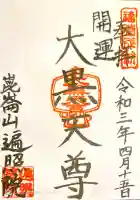 奉拝
開運
大黒天尊
令和三年四月十五日
崑崙山遍照院